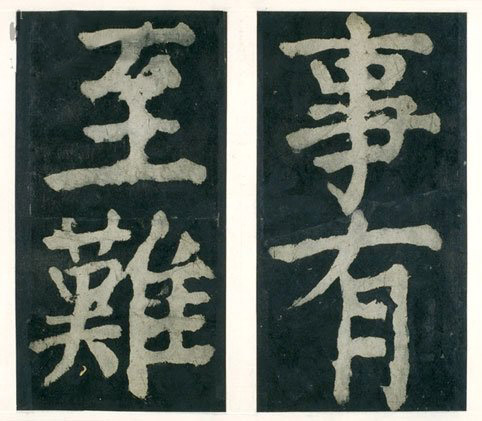 事有
至難